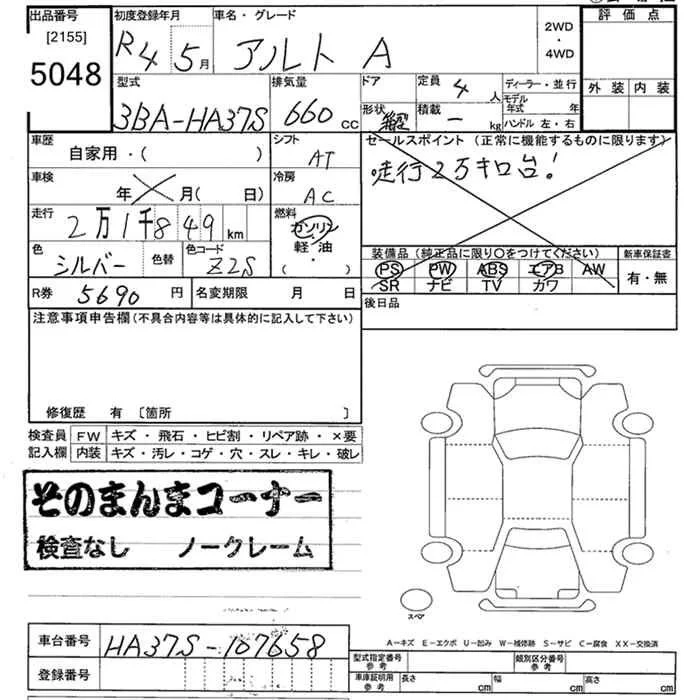 出品番号 初度登録年月 車名・グレード 2WD ・ 4WD 評価点
[2155]
5048
R4 5月 アルト A
外装 内装
型式 排気量 ドア 定員 4人 ディーラー・並行
3BA-HA37S 660cc
モデル年式 年
形状 積載 - kg ハンドル 左・右
車歴 自家用・( ) シフト AT
セールスポイント(正常に機能するものに限ります)
走行2万キロ台!
車検 年 月( 日) 冷房 AC
走行 2万1千849km 燃料 ガソリン・軽油 ( ・ )
色 シルバー 色替 色コード Z2S
装備品(純正品に限り○をつけてください) 新車保証書
PS PW ABS エアB AW 有・無
SR ナビ TV カワ
R券 5690円 名変期限 月 日
後日品
注意事項申告欄(不具合内容等は具体的に記入して下さい)
修復歴 有 [箇所 ]
検査員 FW キズ・飛石・ヒビ割・リペア跡・×要
記入欄 内装 キズ・汚レ・コゲ・穴・スレ・キレ・破レ
そのまんまコーナー
検査なし ノークレーム
スペア
A-キズ E-エクボ U-凹み W-補修跡 S-サビ C-腐食 XX-交換済
車台番号 HA37S-107658
登録番号
型式指定番号 参考 類別区分番号 参考
車庫証明用 参考 長さ cm 幅 cm 高さ cm